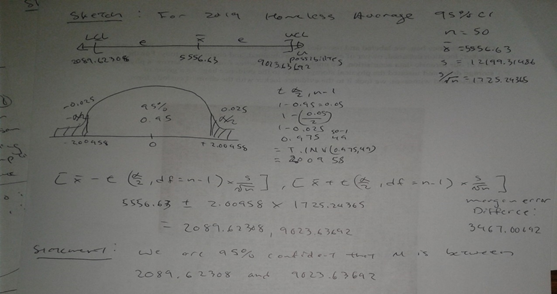 Sketch: For 2019 Homeless Average 95% CI
LCL e x̄ e UCL
2089.62308 5556.63 9023.63692
n = 50
x̄ = 5556.63
s = 12199.31486
s/√n = 1725.24365
t α/2, n-1
1-0.95=0.05
1-(0.05/2)
1-0.025
0.975
= T.INV(0.975,49)
-0.025 95% 0.025
-α/2 0.95 α/2
-2.00958 0 +2.00958
[x̄ - t (α/2, df = n-1) × s/√n], [x̄ + t (α/2, df = n-1) × s/√n]
5556.63 ± 2.00958 × 1725.24365
= 2089.62308, 9023.63692
margin error
3467.00692
Statement: We are 95% confident that M is between
2089.62308 and 9023.63692